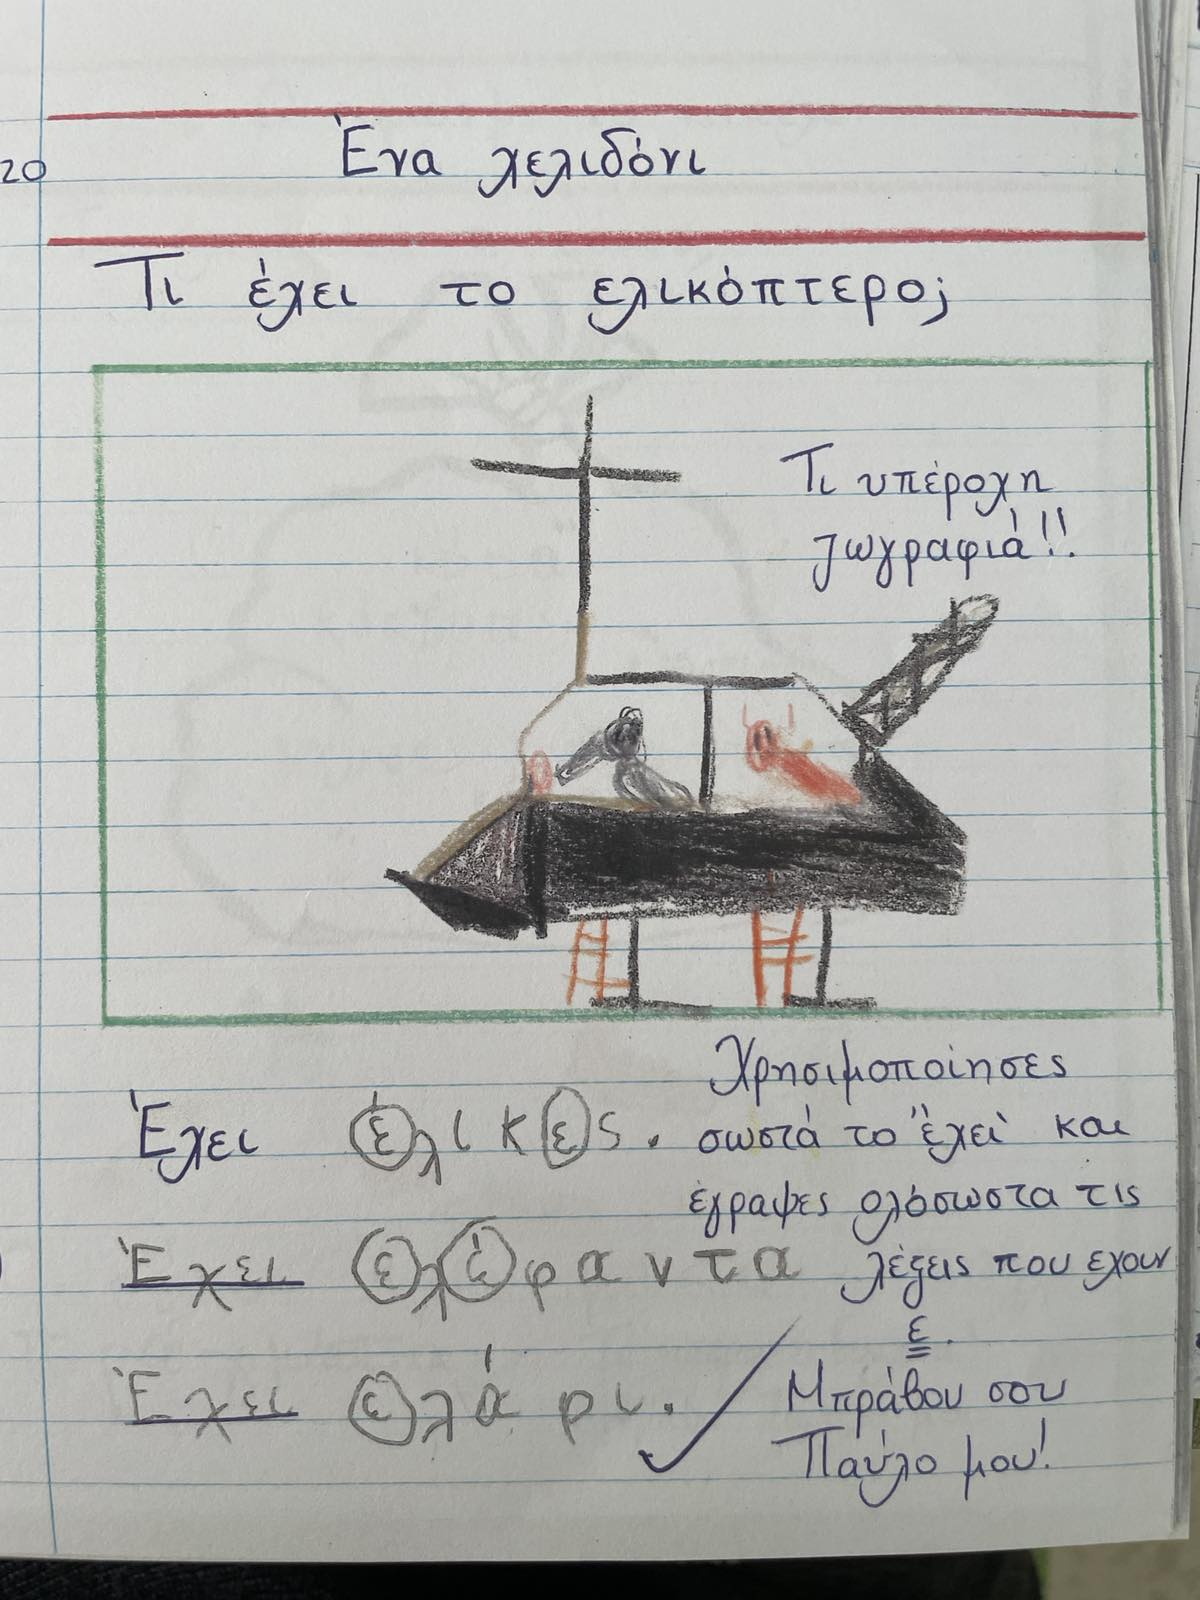 20
Ένα χελιδόνι
Τι έχει το ελικόπτερο;
Τι υπέροχη
ζωγραφιά!!
Έχει έλικες.
Έχει ελέφαντα
Έχει ελάφι.
Χρησιμοποίησες
σωστά το "έχει" και
έγραψες ολόσωστα τις
λέξεις που έχουν
ε.
Μπράβου σου
Παύλο μου!